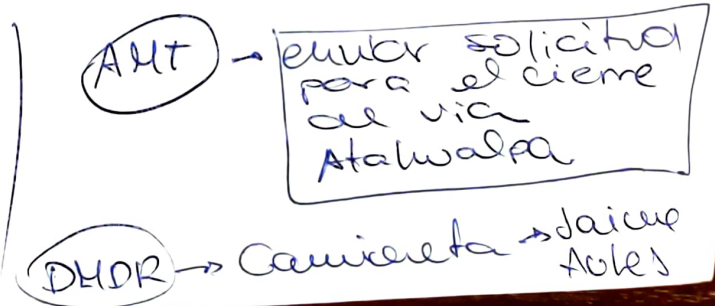 AMT → enviar solicitud
para el cierre
de via
Atahualpa
DMDR → Camioneta → Jaime
Aules